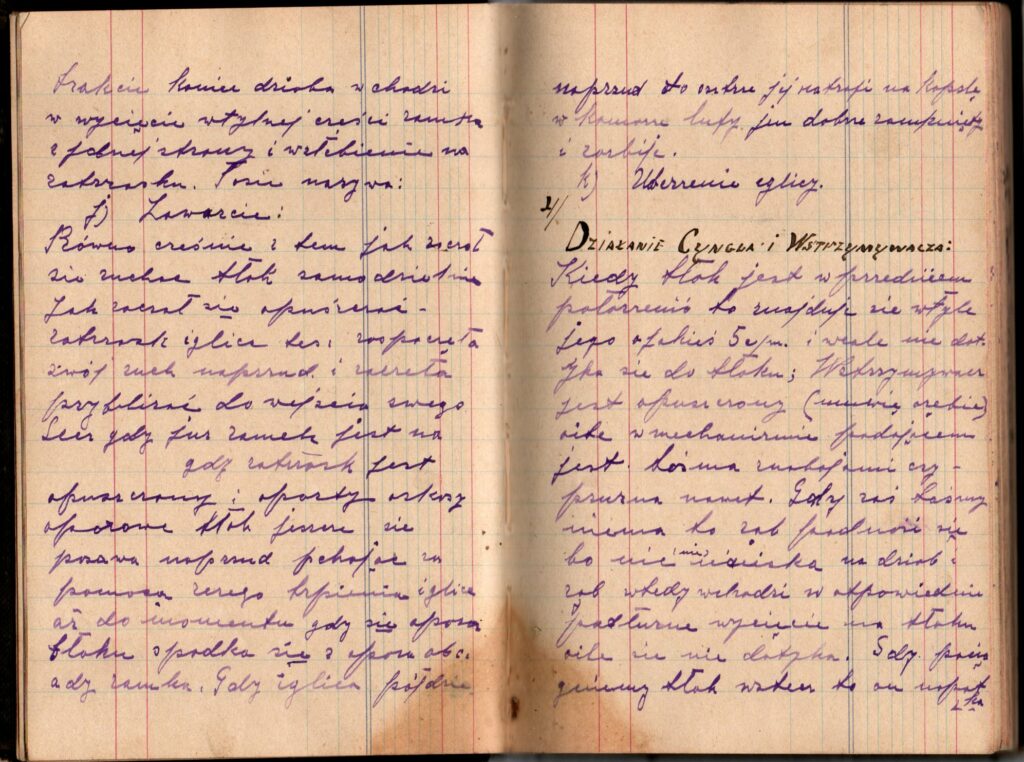 trakcie koniec dzioba wchodzi
w wycięcie wtylnej części zamka
z jednej strony i wżłebienie na
zatrzasku. Tosie nazywa:
j) Zawarcie:
Równo cześnie z tem jak zaczoł
sie ruchać tłok samodzielnie
Jak zaczoł się opuszczać -
zatrzask iglica też: rospoczęła
swój ruch naprzud i zaczeła
przyblirzać do wejścia swego
Lecz gdy jur zamek jest na
gdy zatrzask jest
opuszczony i oparty
oporowe tłok jeszcze sie
posuwa naprzud pchając za
pomocą swego trpienia iglice
aż do momentu gdy się opora
tłoku spodka się z oporą obc.
ady zamka. Gdy iglica pójdzie
naprzud to ostrze jej natrafi na kapslę
w komorze lufy jur dobrze zamkniętej
i zorbije.
k) Uderzenie iglicy.
4/
Działanie Cyngla i Wstrzymywacza:
Kiedy tłok jest w przedniem
położenió to znajduje sie wtyle
jego o jakieś 5 c/m. i wcale nie dot-
yka sie do tłoku; Wstrzymywacz
jest opuszczony (muwię o zebie)
oile w mechanizmie podającem
jest taśma znabojami czy -
prurzna nawet. Gdy zaś taśmy
niema to ząb podnosi się
bo nic nie naciska na dziob:
ząb wtedy wchodzi w otpowiednie
wycięcie na tłoku
oile sie nie dotyka. Gdy pocią
gniemy tłok wstecz to on napot
ka